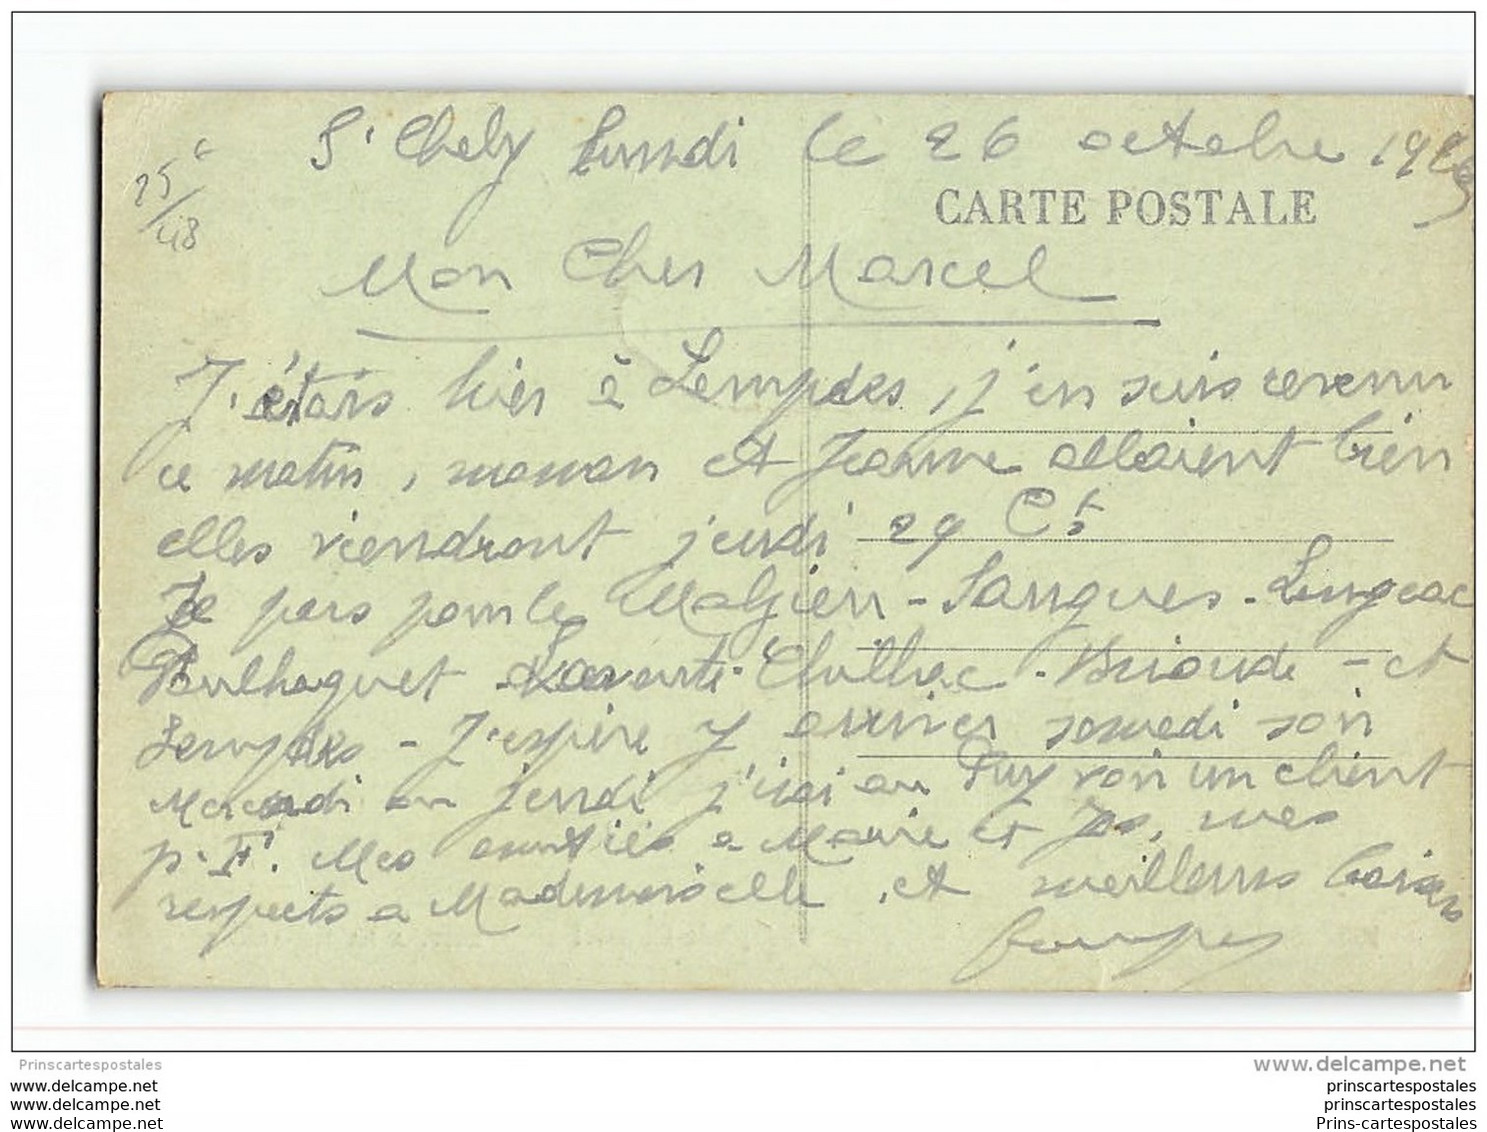 25 c
/48
St Chely Lundi le 26 octobre 192
CARTE POSTALE
Mon Cher Marcel
J'étais hier à Lempdes, j'en suis revenu
ce matin, maman et Jeanne allaient bien
elles viendront jeudi 29 Ct
Je pars pour le Malzieu - Saugues - Langeac
Paulhaguet - Lavoute - Chilhac - Brioude - et
Lempdes - J'espère y arriver samedi soir
Mercredi ou jeudi j'irai au Puy voir un client
p. F. Mes amitiés a Marie et mes
respects a Mademoiselle, et meilleurs baisers
Prinscartespostales
www.delcampe.net
www.delcampe.net
www.delcampe.net
www.delcampe.net
prinscartespostales
prinscartespostales
Prins-cartespostales